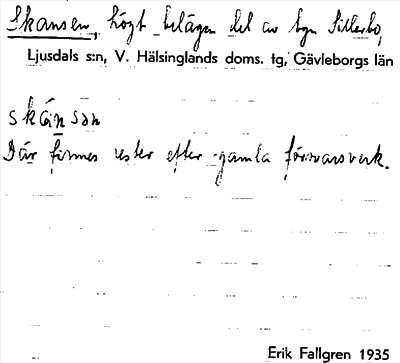 Skansen, högt belägen del av byn Sillerbo,
Ljusdals s:n, V. Hälsinglands doms. tg, Gävleborgs län
skánsən
Där finnes rester efter gamla försvarsverk.
Erik Fallgren 1935